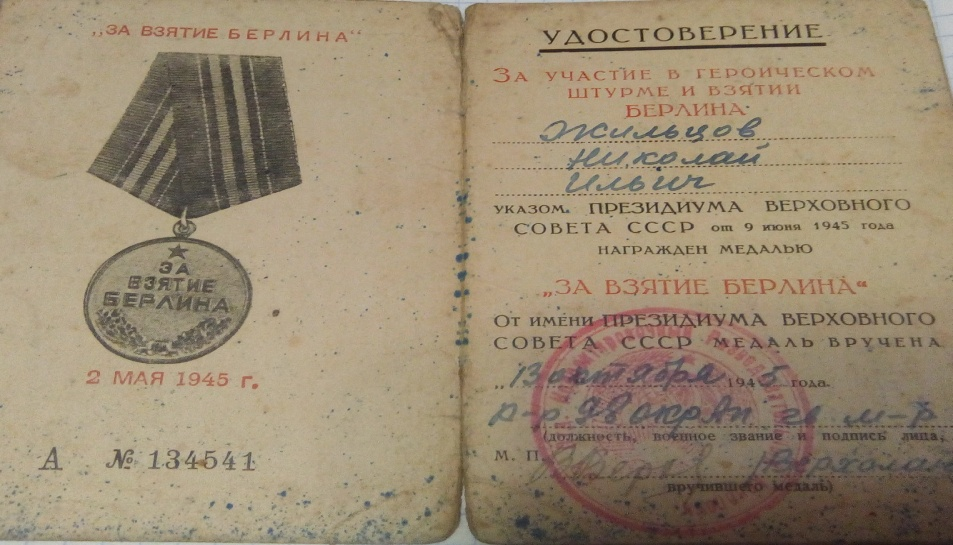 „ЗА ВЗЯТИЕ БЕРЛИНА“
ЗА
ВЗЯТИЕ
БЕРЛИНА
2 МАЯ 1945 г.
А № 134541
УДОСТОВЕРЕНИЕ
ЗА УЧАСТИЕ В ГЕРОИЧЕСКОМ
ШТУРМЕ И ВЗЯТИИ
БЕРЛИНА
Жильцов
Николай
Ильич
УКАЗОМ ПРЕЗИДИУМА ВЕРХОВНОГО
СОВЕТА СССР от 9 июня 1945 года
НАГРАЖДЕН МЕДАЛЬЮ
„ЗА ВЗЯТИЕ БЕРЛИНА“
От имени ПРЕЗИДИУМА ВЕРХОВНОГО
СОВЕТА СССР МЕДАЛЬ ВРУЧЕНА
„13 октября 1945 года.
(должность, военное звание и подпись лица,
М. П.
вручившего медаль)